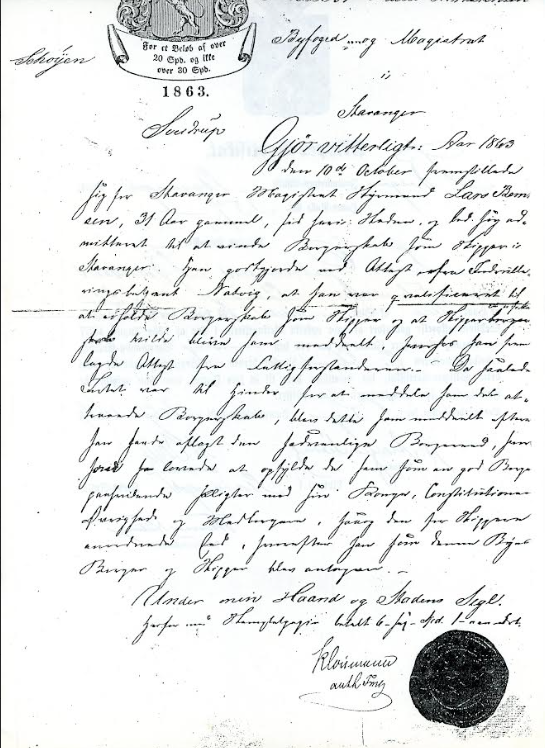 Schøyen
For et Beløb af over
20 Spd. og ikke
over 30 Spd.
1863.
Byfoged og Magistrat
i
Stavanger
Gjör vitterligt: Aar 1863
den 10de October fremstillede
sig for Stavanger Magistrat Styrmand Lars Bern
sen, 31 Aar gammel, fød her i Staden, og bad sig ad-
mitteret til at vinde Borgerskab som Skipper i
Stavanger. Han godtgjorde ved Attest fra Indrulle-
ringsbetjent Nødvig, at han var qvalificeret til
at erholde Borgerskab som Skipper og at Skipperborger
skab vilde blive ham meddeelt, hvorhos han frem
lagde Attest fra Fattigforstanderen. Da saaledes
Intet var til Hinder for at meddele ham det at-
traaede Borgerskab, blev dette ham meddeelt efter
han havde aflagt den sædvanlige Borgereed, hvor
han lovede at opfylde de ham som en god Borger
paahvilende Pligter mod sin Konge, Constitutionen
Øvrighed og Medborgere, samt den for Skippere
anordnede Eed, hvorefter han som denne Byes
Borger og Skipper blev antagen.
Under min Haand og Stadens Segl.